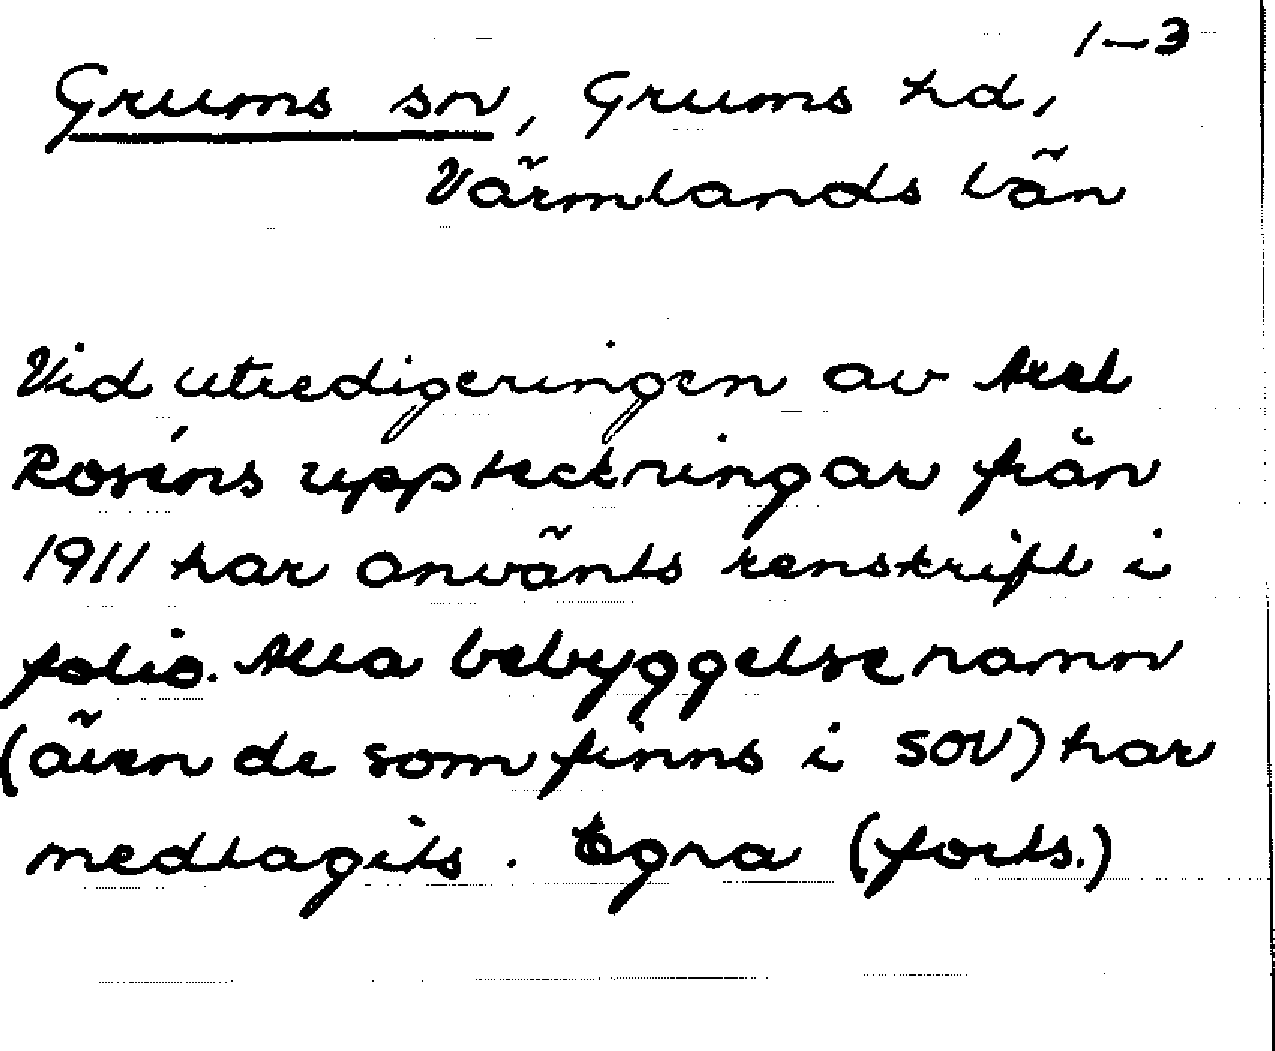 1–3
Grums sn, Grums hd,
Värmlands län
Vid utredigeringen av Axel
Roséns uppteckningar från
1911 har använts renskrift i
folio. Alla bebyggelsenamn
(även de som finns i SOV) har
medtagits. Egna (forts.)